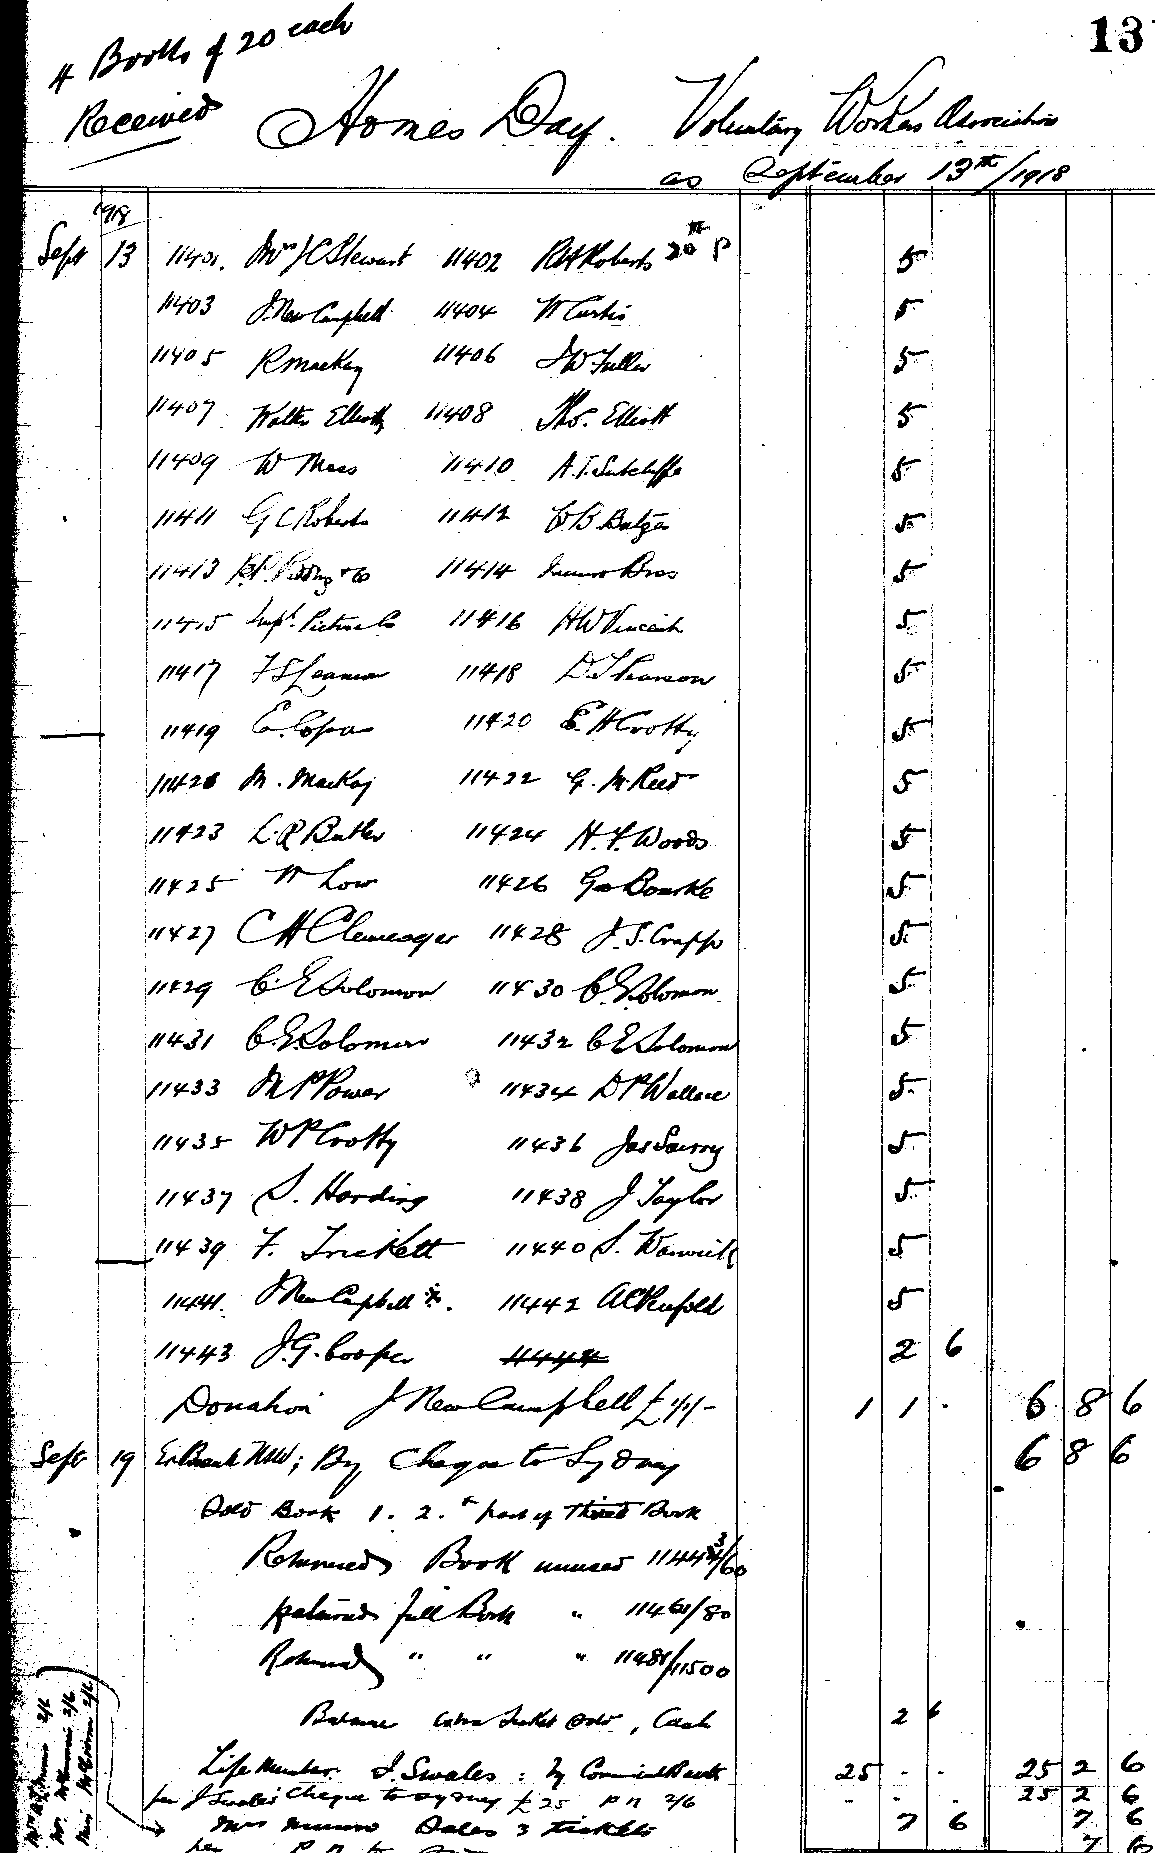 13
4 Books of 20 each
Received Homes Day. Voluntary Workers Association
as September 13th/1918
1918
Sept 13 11401. Mrs J C Stewart 11402 R H Roberts 20th P 5
11403 J. New Campbell 11404 W Curtis 5
11405 R Mackay 11406 J W Fuller 5
11407 Walter Elliott 11408 Thos. Elliott 5
11409 W Moss 11410 A. T. Sutcliffe 5
11411 G C Roberts 11412 C B Balzer 5
11413 & Co 11414 Bros 5
11415 Picture Co 11416 H W Vincent 5
11417 F S Leamon 11418 D T Pearson 5
11419 E. Copas 11420 E. H Crotty 5
11421 M. MacKay 11422 G. M. Reed 5
11423 L. R Butler 11424 H. F. Woods 5
11425 W Low 11426 Geo Bourke 5
11427 C H Clemenger 11428 J. S. Crapp 5
11429 C. E Solomon 11430 C. E. Solomon 5
11431 C. E. Solomon 11432 C E Solomon 5
11433 M P Power 11434 D P Wallace 5
11435 W P Crotty 11436 Jas 5
11437 S. Harding 11438 J Taylor 5
11439 F. Trickett 11440 S. Warwick 5
11441. J New Campbell 11442 A C Penfold 5
11443 J. G. Cooper 11444 2 6
Donation J New Campbell £1/1/- 1 1 . 6 8 6
Sept 19 Bank NSW; By Cheque to Sydney 6 8 6
Sold Book 1. 2. & part of Third Book
Returned Book unused 11443/60
Returned full Book " 11461/80
Returned " " " 11481/11500
Balance extra Ticket sold, Cash 2 6
Life Member. J. Swales: By Commercial Bank 25 . . 25 2 6
per J Swales Cheque to Sydney £25 P N 2/6 - - . 25 2 6
Mrs Munro Sales 3 tickets 7 6 7 6
per P N to 7 6